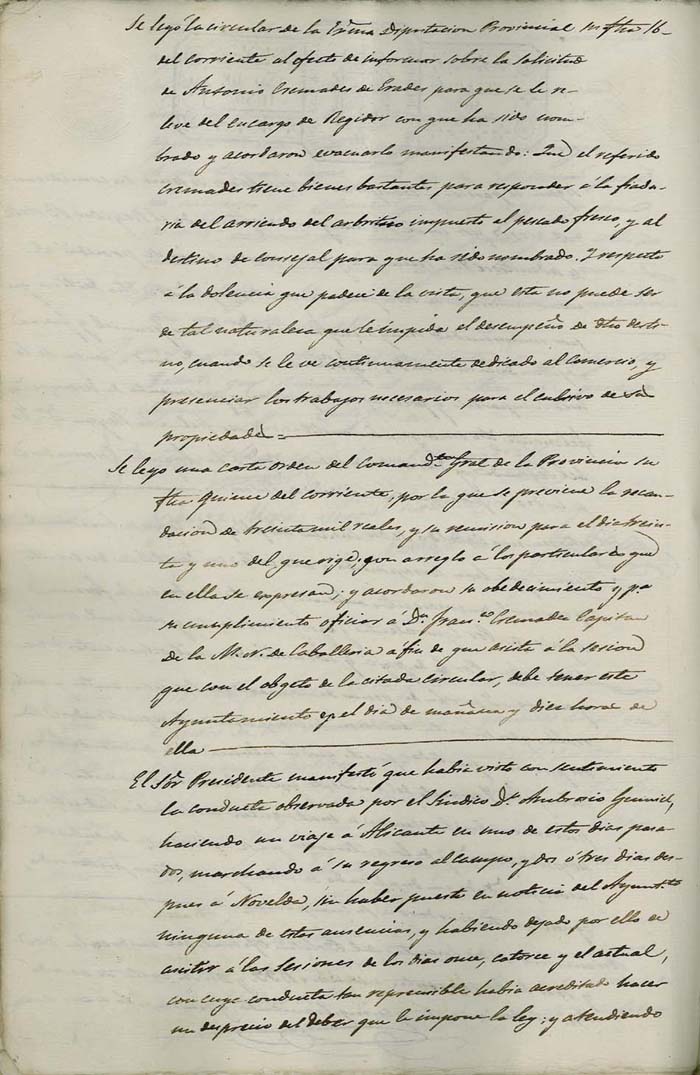 Se leyó la circular de la Exma Diputacion Provincial su fha 16
del corriente al efecto de informar sobre la solicitud
de Antonio Cremades de Crades para que se le re-
leve del encargo de Regidor con que ha sido nom-
brado y acordaron evacuarlo manifestando: Que el referido
Cremades tiene bienes bastantes para responder á la fiadu-
ria del arriendo del arbitrio impuesto al pescado fresco, y al
destino de consejal para que ha sido nombrado. Y respecto
á la dolencia que padece de la vista, que esta no puede ser
de tal naturaleza que le impida el desempeño de dho desti-
no, cuando se le ve continuamente dedicado al comercio, y
presenciar los trabajos necesarios para el cultivo de su
propiedad =
Se leyo una carta orden del Comandte Gral de la Provincia su
fha quince del corriente, por la que se previene la recau-
dacion de treinta mil reales, y su remision para el dia trein-
ta y uno del que rige, con arreglo á los particulares que
en ella se expresan; y acordaron su obedecimiento y pa
su cumplimiento oficiar á Dn Franco Cremades Capitan
de la M. N. de Caballeria á fin de que asista á la sesion
que con el obgeto de la citada circular, debe tener este
Ayuntamiento en el dia de mañana y diez horas de
ella
El Sor Presidente manifestó que habia visto con sentimiento
la conducta observada por el Sindico Dn Ambrosio
haciendo un viaje á Alicante en uno de estos dias pasa-
dos, marchando á su regreso al campo, y dos ó tres dias des-
pues á Novelda, sin haber puesto en noticia del Ayuntto
ninguna de estas ausencias, y habiendo dejado por ello de
asistir á las sesiones de los dias once, catorce y el actual,
con cuya conducta tan reprensible habia acreditado hacer
un desprecio del deber que le impone la ley; y atendiendo